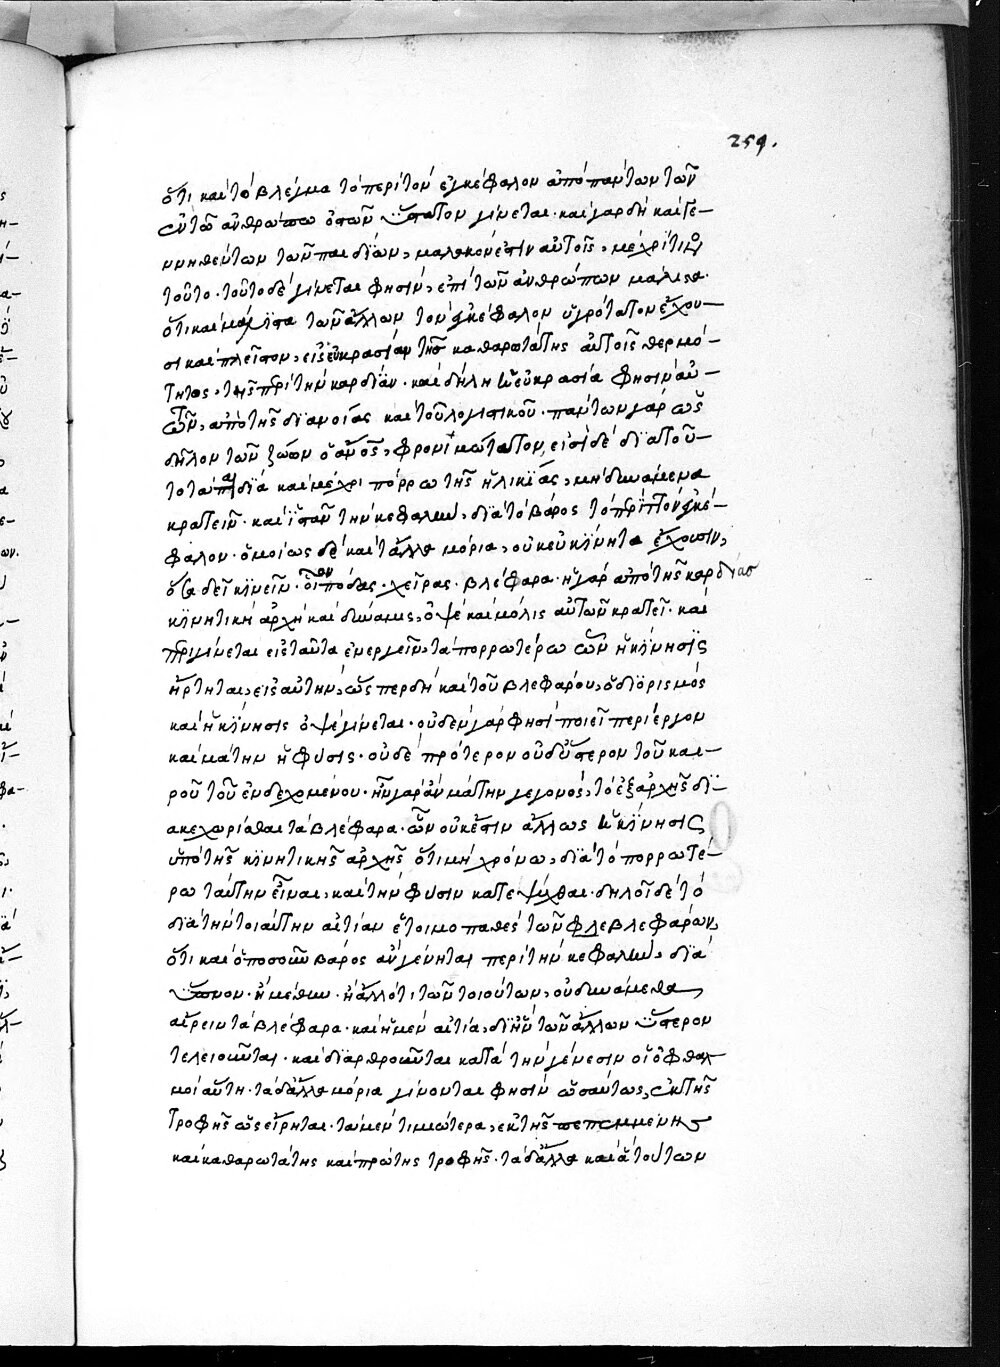 259.
ὅτι καὶ τὸ βλέγμα τὸ περὶ τὸν ἐγκέφαλον ἀπὸ πάντων τῶν
ἐν τῶ ἀνθρώπω ὀστῶν ὕστατον γίνεται· καὶ γὰρ δὴ καὶ γε–
ννηθέντων τῶν παιδίων, μαλακόν ἐστιν αὐτοῖς, μέχρί τινος
τοῦτο· τοῦτο δὲ γίνεται φησὶν, ἐπὶ τῶν ἀνθρώπων μάλιστα·
ὅτι καὶ μάλιστα τῶν ἄλλων τὸν ἐγκέφαλον ὑγρότατον ἔχου–
σι καὶ πλεῖστον, εἰς εὐκρασίαν τῆς καθαρωτάτης αὐτοῖς θερμό–
τητος, τῆς περὶ τὴν καρδίαν· καὶ δήλη ἡ εὐκρασία φησὶν αὐ–
τῶν, ἀπὸ τῆς διανοίας καὶ τοῦ λογιστικοῦ· πάντων γὰρ ὡς
δῆλον τῶν ζώων ὁ ἄνος, φρονιμώτατον, εἰσὶ δὲ διὰ τοῦ–
το τὰ παιδία καὶ μέχρι πόρρω τῆς ἡλικίας, μὴ δυνάμενα
κρατεῖν· καὶ ἱστᾶν τὴν κεφαλὴν, διὰ τὸ βάρος τὸ περὶ τὸν ἐγκέ–
φαλον· ὁμοίως δὲ καὶ τἄλλα μόρια, οὐκ εὐκίνητα ἔχουσιν,
ὅσα δεῖ κινεῖν· οἷον πόδας· χεῖρας· βλέφαρα· ἡ γὰρ ἀπὸ τῆς καρδίας
κινητικὴ ἀρχὴ καὶ δύναμις, ὀψὲ καὶ μόλις αὐτῶν κρατεῖ· καὶ
περιγίνεται εἰς ταῦτα ἐνεργεῖν, τὰ πορρωτέρω ὧν ἡ κίνησις
ἤρτηται, εἰς αὐτὴν, ὥσπερ δὴ καὶ τοῦ βλεφάρου, ὁ διορισμός
καὶ ἡ κίνησις ὀψὲ γίνεται· οὐδὲν γὰρ φησὶ ποιεῖ περίεργον
καὶ μάτην ἡ φύσις· οὐδὲ πρότερον οὐδ' ὕστερον τοῦ και–
ροῦ τοῦ ἐνδεχομένου· ἦν γὰρ ἂν μάτην γεγονός, τὸ ἐξ ἀρχῆς δι–
ακεχωρίσθαι τὰ βλέφαρα· ὧν οὐκ ἔστιν ἄλλως ἡ κίνησις
ὑπὸ τῆς κινητικῆς ἀρχῆς ὅτι μὴ χρόνω, διὰ τὸ πορρωτέ–
ρω ταύτην εἶναι, καὶ τὴν φύσιν κατεψύχθαι· δηλοῖ δὲ τὸ
διὰ τὴν τοιαύτην αἰτίαν ἑτοιμοπαθὲς τῶν φλεβλεφάρων,
ὅτι καὶ ὁποσοῦν βάρος ἂν γένηται περὶ τὴν κεφαλὴν, διὰ
ὕπνον· ἢ μέθην· ἢ ἄλλό τι τῶν τοιούτων, οὐ δυνάμεθα
αἴρειν τὰ βλέφαρα· καὶ ἡ μὲν αἰτία, δι' ἣν τῶν ἄλλων ὕστερον
τελειοῦνται· καὶ διαρθροῦνται κατὰ τὴν γένεσιν οἱ ὀφθαλ
μοὶ αὕτη· τὰ δ' ἄλλα μόρια γίνονται φησὶν ὡσαύτως, ἐκ τῆς
τροφῆς ὡς εἴρηται· τὰ μὲν τιμιώτερα, ἐκ τῆς πεπεμμένης
καὶ καθαρωτάτης καὶ πρώτης τροφῆς· τὰ δ' ἄλλα καὶ ἃ τούτων